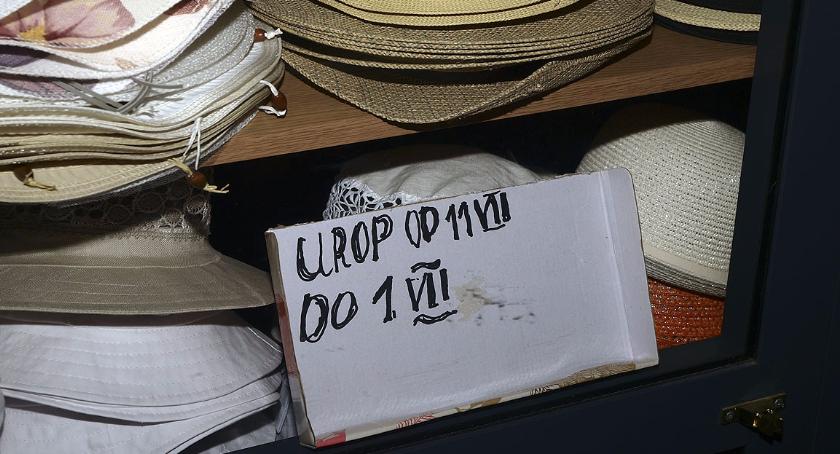 UROP OD 11 VII
DO 1 VII